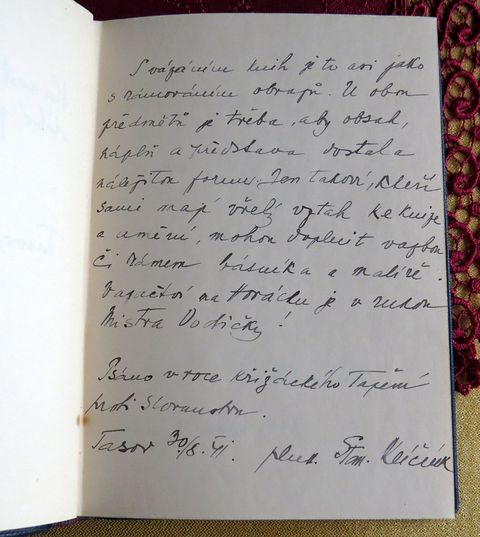 S vázáním knih je to asi jako
s rámováním obrazů. U obou
předmětů je třeba, aby obsah,
náplň a představa dostala
náležitou formu. Jen takoví, kteří
sami mají vřelý vztah ke knize
a umění, mohou doplnit vazbou
či rámem básníka a malíře.
Vazačství na Horácku je v rukou
Mistra Vodičky!
Psáno v roce křižáckého Tažení
proti Slovanstvu.
Tasov 30/8. 41.